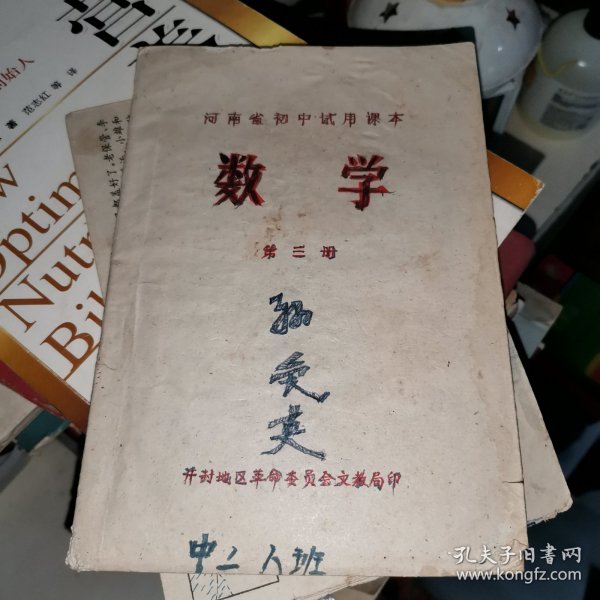 河南省初中试用课本
数学
第三册
孙爱英
开封地区革命委员会文教局印
中二 八班
范志红 等 译
Optim
Nutr
孔夫子旧书网
www.kongfz.com